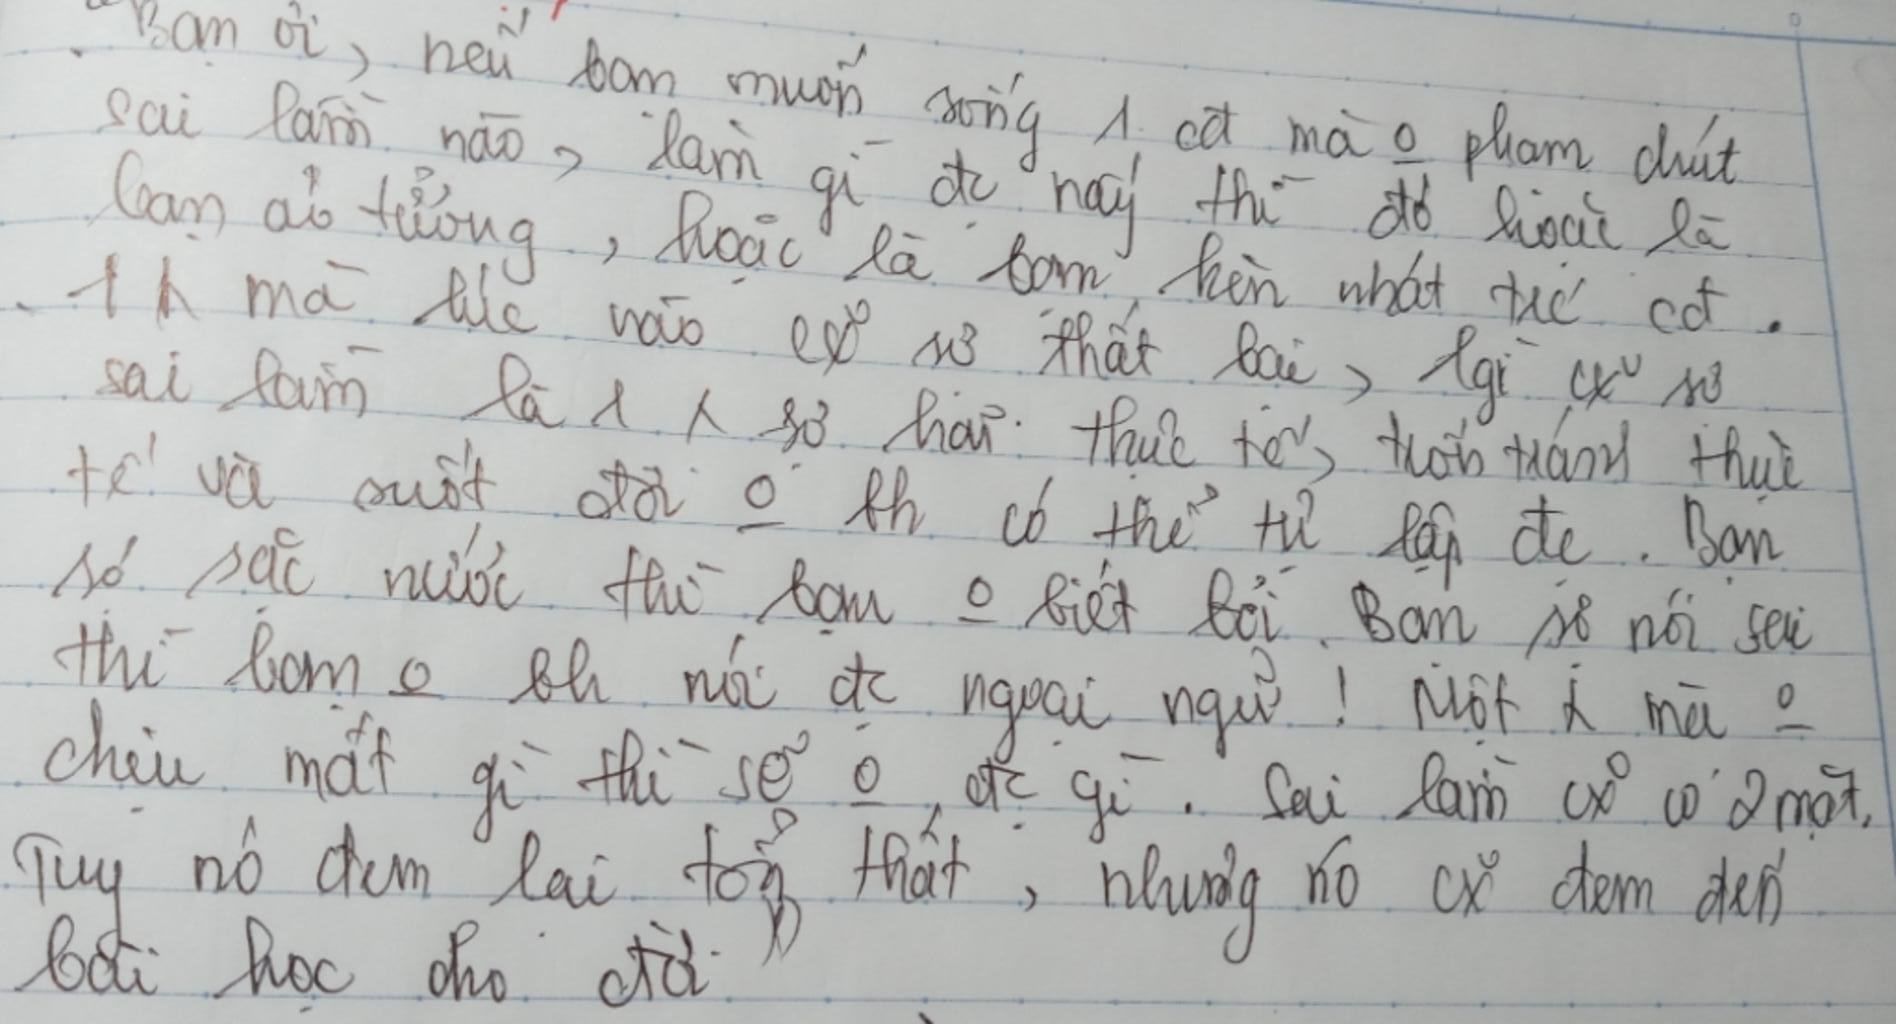 "Bạn ơi, nếu bạn muốn sống 1 cđ mà o phạm chút
sai lầm nào, làm gì đc nấy thì đó hoặc là
bạn ảo tưởng, hoặc là bạn hèn nhát trc cđ.
1 λ mà lúc nào cx sợ thất bại, lgì cx sợ
sai lầm là 1 λ sợ hãi thực tế, trốn tránh thực
tế và suốt đời o bh có thể tự lập đc. Bạn
sợ sặc nước thì bạn o biết bơi. Bạn sợ nói sai
thì bạn o bh nói đc ngoại ngữ! Một λ mà o
chịu mất gì thì sẽ o đc gì. Sai lầm cx có 2 mặt.
Tuy nó đem lại tổn thất, nhưng nó cx đem đến
bài học cho đời"